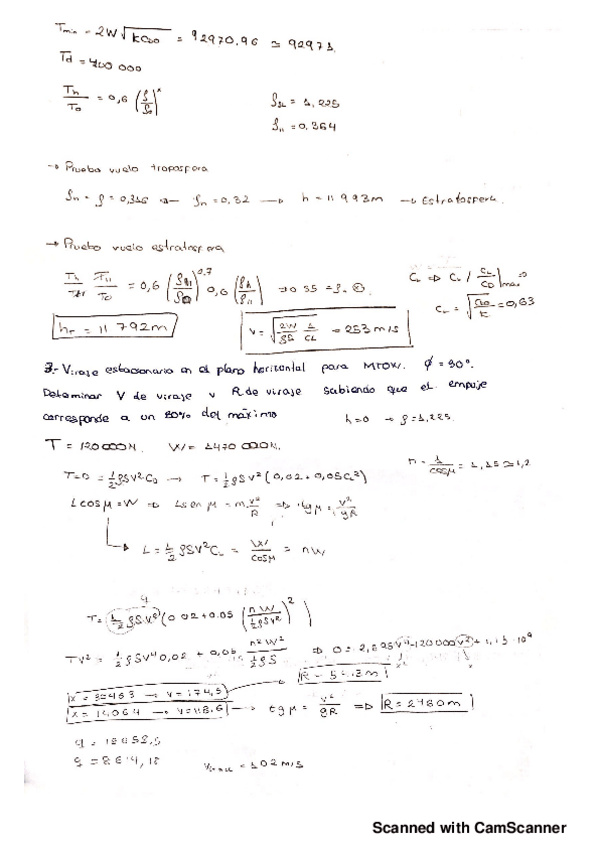 Tmin = 2W√kCDo = 92970,96 ≃ 92971.
Td = 400 000
Th/To = 0,6 (ρ/ρo)^x
ρSL = 1,225
ρ11 = 0,364
→ Prueba vuelo troposfera
ρn = 0,32 → h = 11 993m → Estratosfera.
→ Prueba vuelo estratosfera
T11/To = 0,6 (ρ11/ρo)^0,7 0,6 (ρh/ρ11)
CL ⇒ CL / CL/CD|max ⇒
CL = √(CDo/k) = 0,63
hT = 11 792m
V = √(2W/ρS 1/CL) = 253 m/s
3.- Viraje estacionario en el plano horizontal para MTOW. φ = 30°.
Determinar V de viraje y R de viraje sabiendo que el empuje
corresponde a un 80% del máximo
h=0 → ρ=1,225.
T = 120000N. W = 1470 000N.
n = 1/cosμ = 1,15 ≃ 1,2
T=D = ½ρSV²CD → T = ½ρSV² (0,02 + 0,05CL²)
Lcosμ = W ⇒ Lsenμ = m V²/R ⇒ tgμ = V²/gR
L = ½ρSV²CL = W/cosμ = nW
T = ½ρSV² (0,02 + 0,05 (nW/½ρSV²)²)
TV² = ½ρSV⁴0,02 + 0,05 n²W²/½ρS ⇒ 0 = 2,525V⁴ - 120000V² + 1,13·10⁹
x = 30453 → V = 174,5
x = 14064 → V = 118,6 → tgμ = V²/gR ⇒ R = 2480m
q = 8614,18
= 102 m/s
Scanned with CamScanner